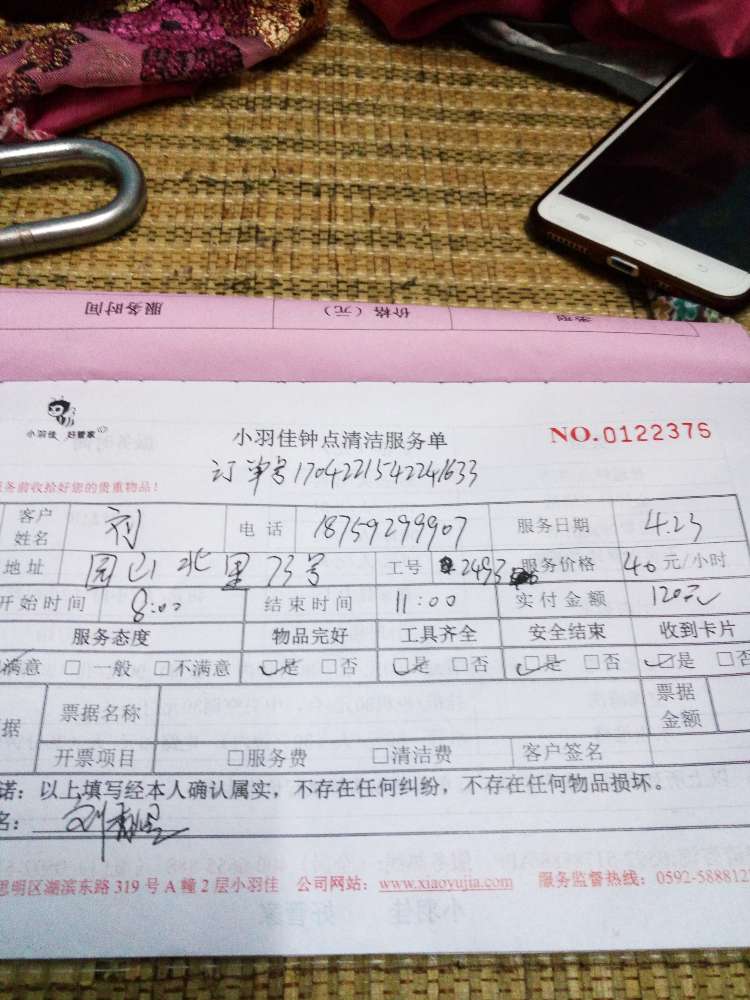 服务时间 价格（元） 类型
小羽佳 好管家
小羽佳钟点清洁服务单
NO.0122375
订单号1704221542241633
务前收拾好您的贵重物品！
客户姓名 刘 电话 18759299907 服务日期 4.23
地址 园山北里73号 工号 2493 服务价格 40元/小时
开始时间 8:00 结束时间 11:00 实付金额 120元
服务态度 物品完好 工具齐全 安全结束 收到卡片
满意 □一般 □不满意 ☑是 □否 ☑是 □否 ☑是 □否 ☑是 □否
据 票据名称 票据金额
开票项目 □服务费 □清洁费 客户签名
诺：以上填写经本人确认属实，不存在任何纠纷，不存在任何物品损坏。
名：
思明区湖滨东路319号A幢2层小羽佳 公司网站：www.xiaoyujia.com 服务监督热线：0592-588812